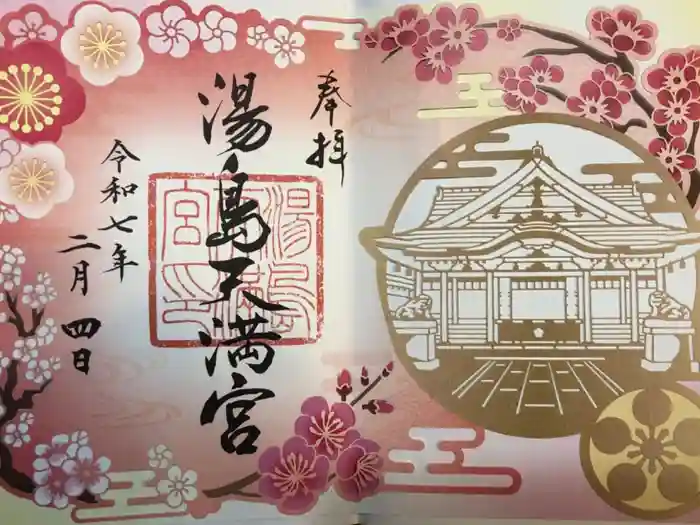 奉拝
湯島天満宮
令和七年
二月四日
湯島天満宮印